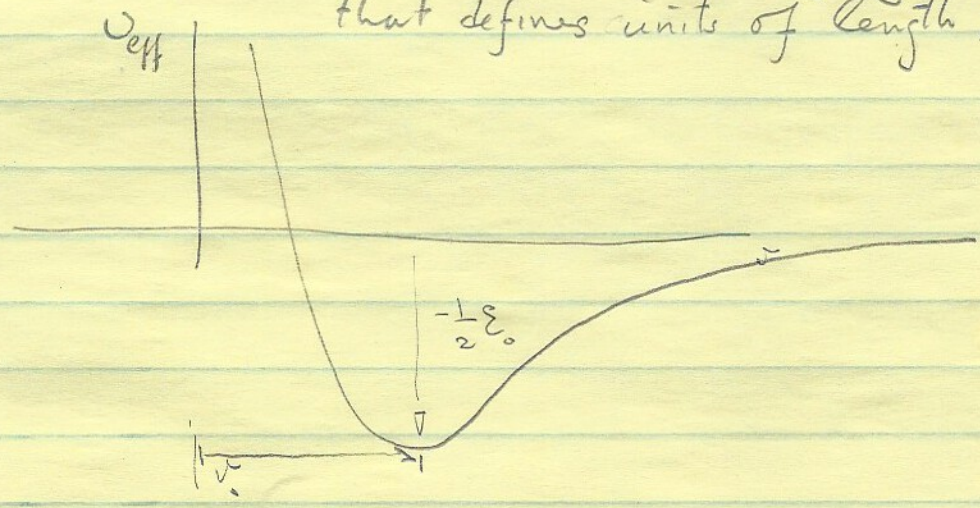 that defines units of length
U_eff
r
-1/2 ε₀
r₀